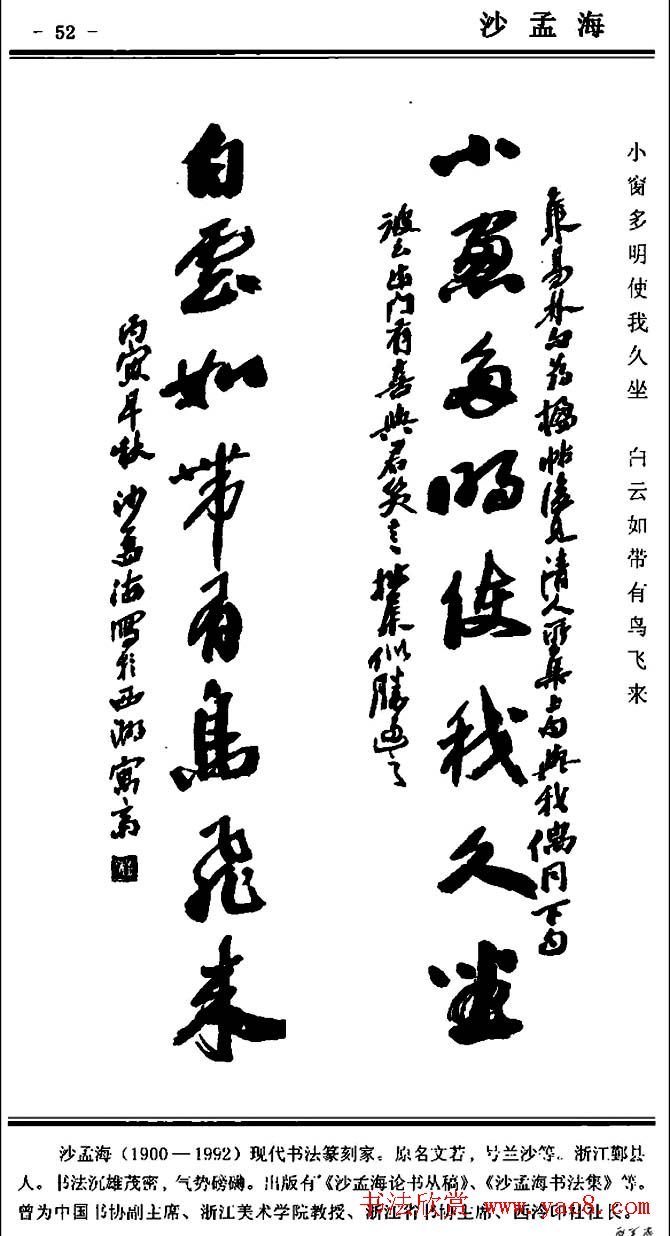 - 52 -
沙孟海
小窗多明使我久坐 白云如带有鸟飞来
集易林句為楹帖後見清人所集上句與我偶同下句
小窗多明使我久坐
彼云出門有喜與君笑言拙集似勝過之
白雲如帶有鳥飛來
丙寅早秋沙孟海寫於西湖寓齋
沙孟海（1900—1992）现代书法篆刻家。原名文若，号兰沙等。浙江鄞县
人。书法沉雄茂密，气势磅礴。出版有《沙孟海论书丛稿》、《沙孟海书法集》等。
曾为中国书协副主席、浙江美术学院教授、浙江省书协主席、西泠印社社长。
书法欣赏 www.yac8.com